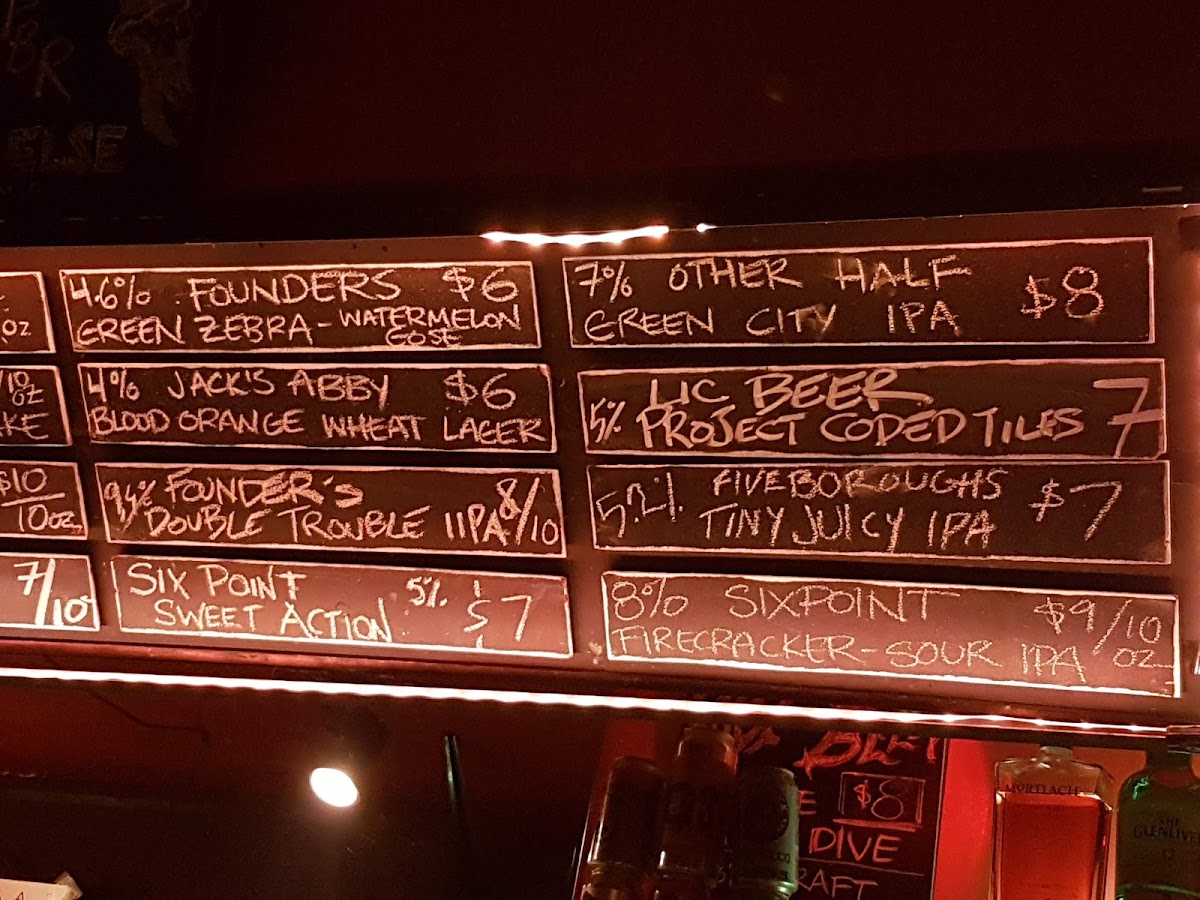 ELSE
OZ
4.6% FOUNDERS $6
GREEN ZEBRA - WATERMELON
GOSE
7% OTHER HALF $8
GREEN CITY IPA
10
OZ
KE
4% JACK'S ABBY $6
BLOOD ORANGE WHEAT LAGER
LIC BEER 7
5% PROJECT CODED TILES
$10
10oz
FOUNDER'S 8/10
DOUBLE TROUBLE IIPA
5.2% FIVEBOROUGHS $7
TINY JUICY IPA
7/10
SIX POINT 5% $7
SWEET ACTION
8% SIXPOINT $9/10
FIRECRACKER - SOUR IPA OZ
$8
DIVE
RAFT
MORTLACH
THE
GLENLIVE
12